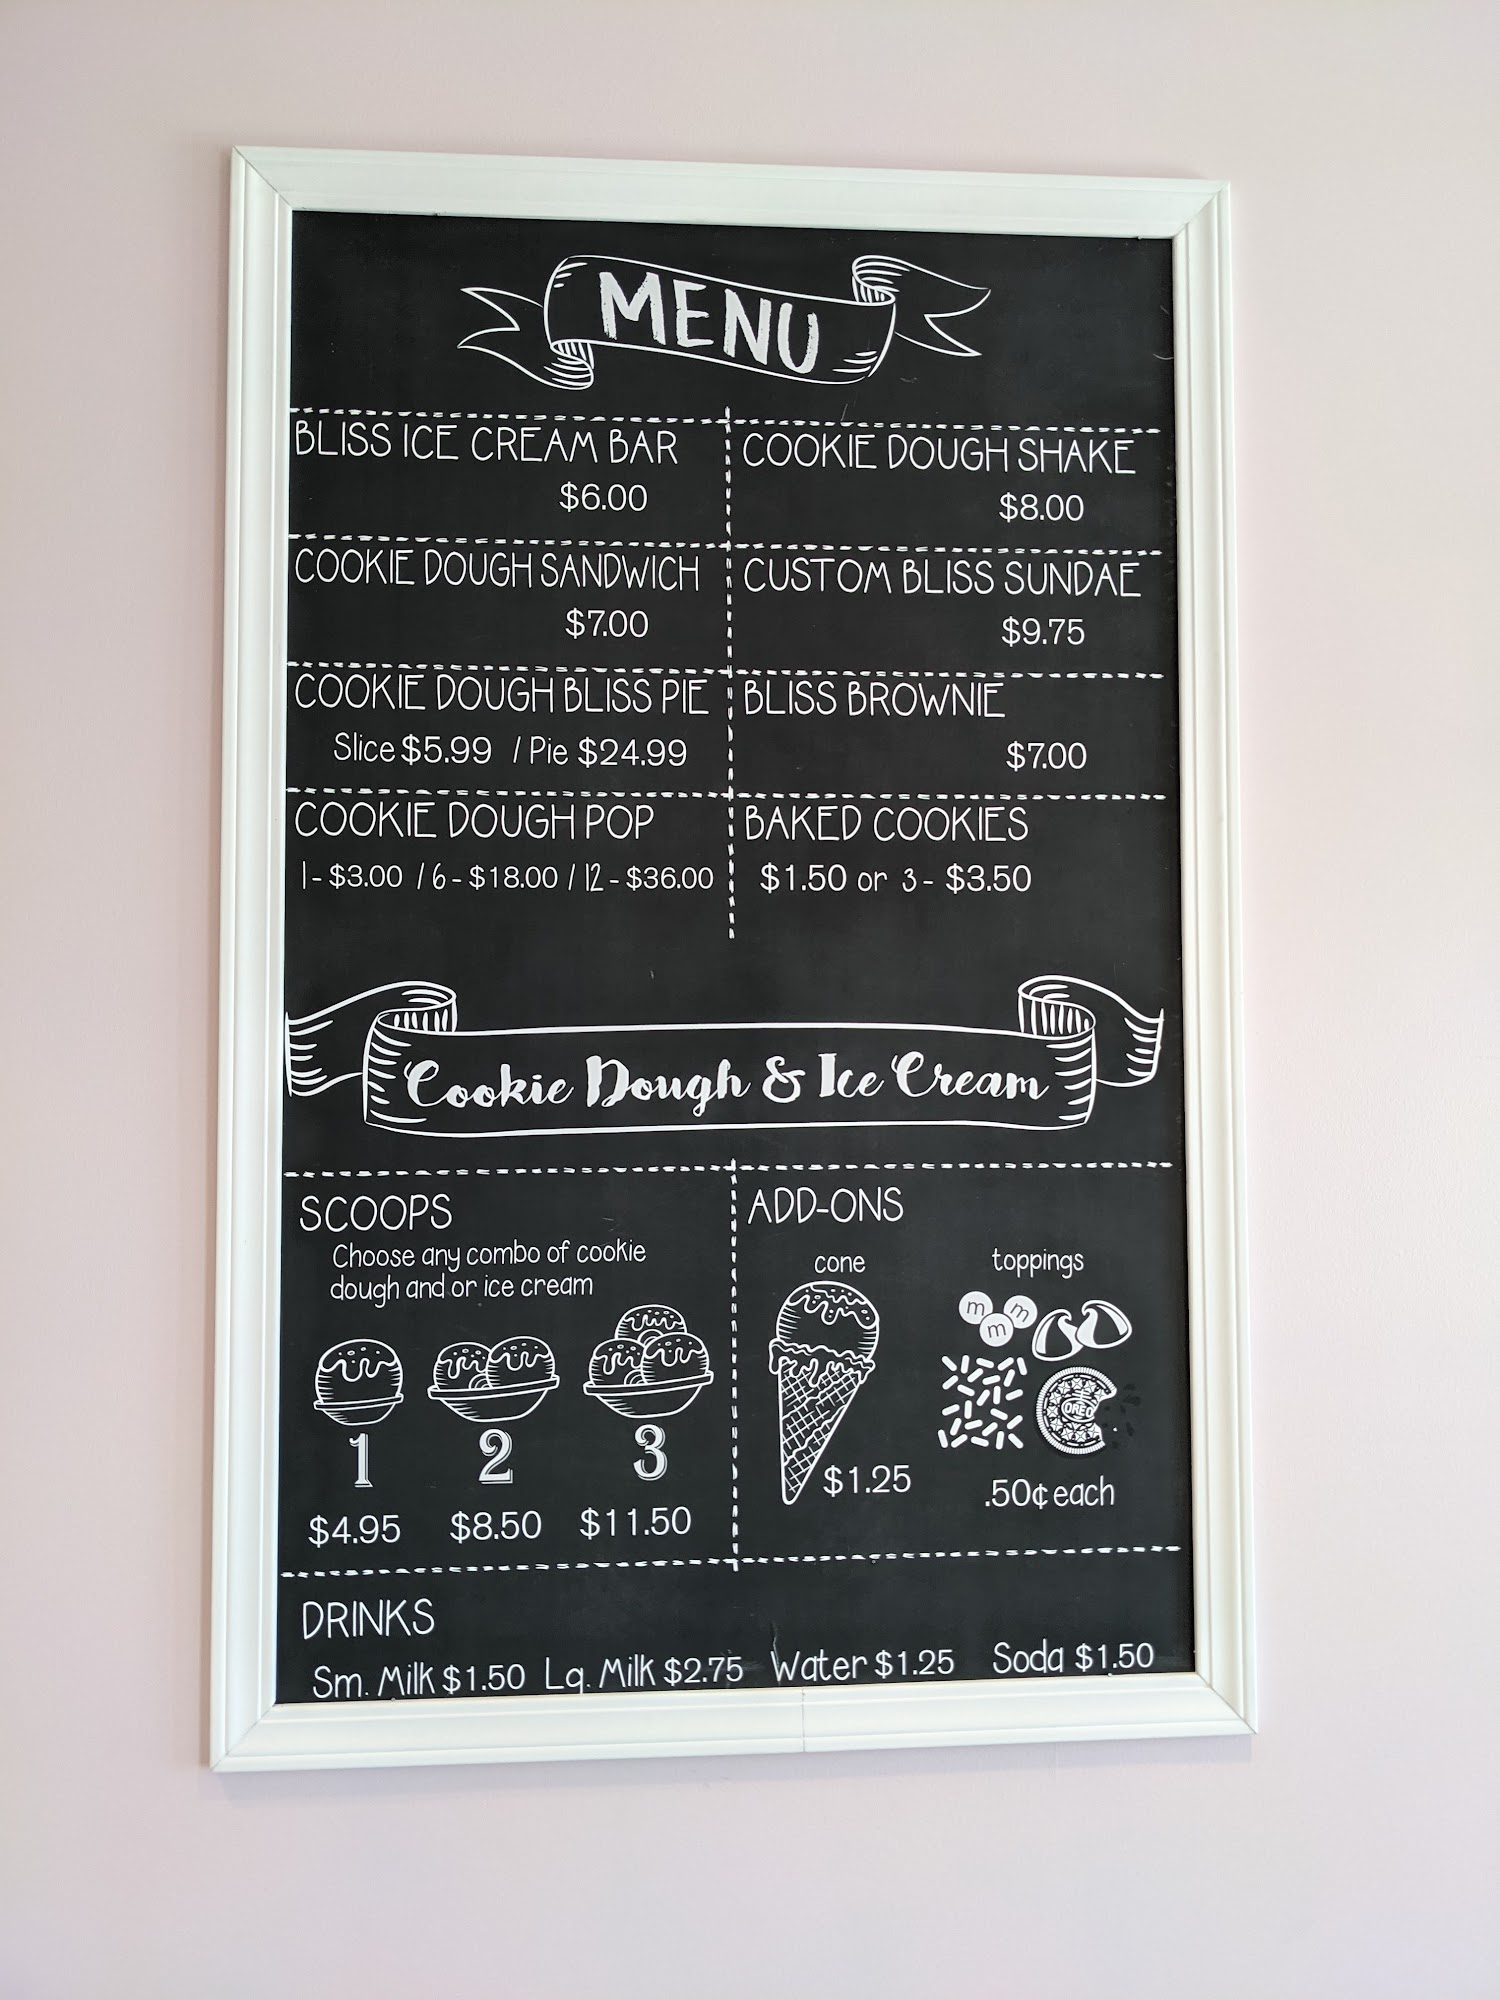 MENU
BLISS ICE CREAM BAR
$6.00
COOKIE DOUGH SHAKE
$8.00
COOKIE DOUGH SANDWICH
$7.00
CUSTOM BLISS SUNDAE
$9.75
COOKIE DOUGH BLISS PIE
Slice $5.99 / Pie $24.99
BLISS BROWNIE
$7.00
COOKIE DOUGH POP
1 - $3.00 / 6 - $18.00 / 12 - $36.00
BAKED COOKIES
$1.50 or 3 - $3.50
Cookie Dough & Ice Cream
SCOOPS
Choose any combo of cookie
dough and or ice cream
1 2 3
$4.95 $8.50 $11.50
ADD-ONS
cone
$1.25
toppings
m m
m
OREO
.50¢ each
DRINKS
Sm. Milk $1.50 Lg. Milk $2.75 Water $1.25 Soda $1.50